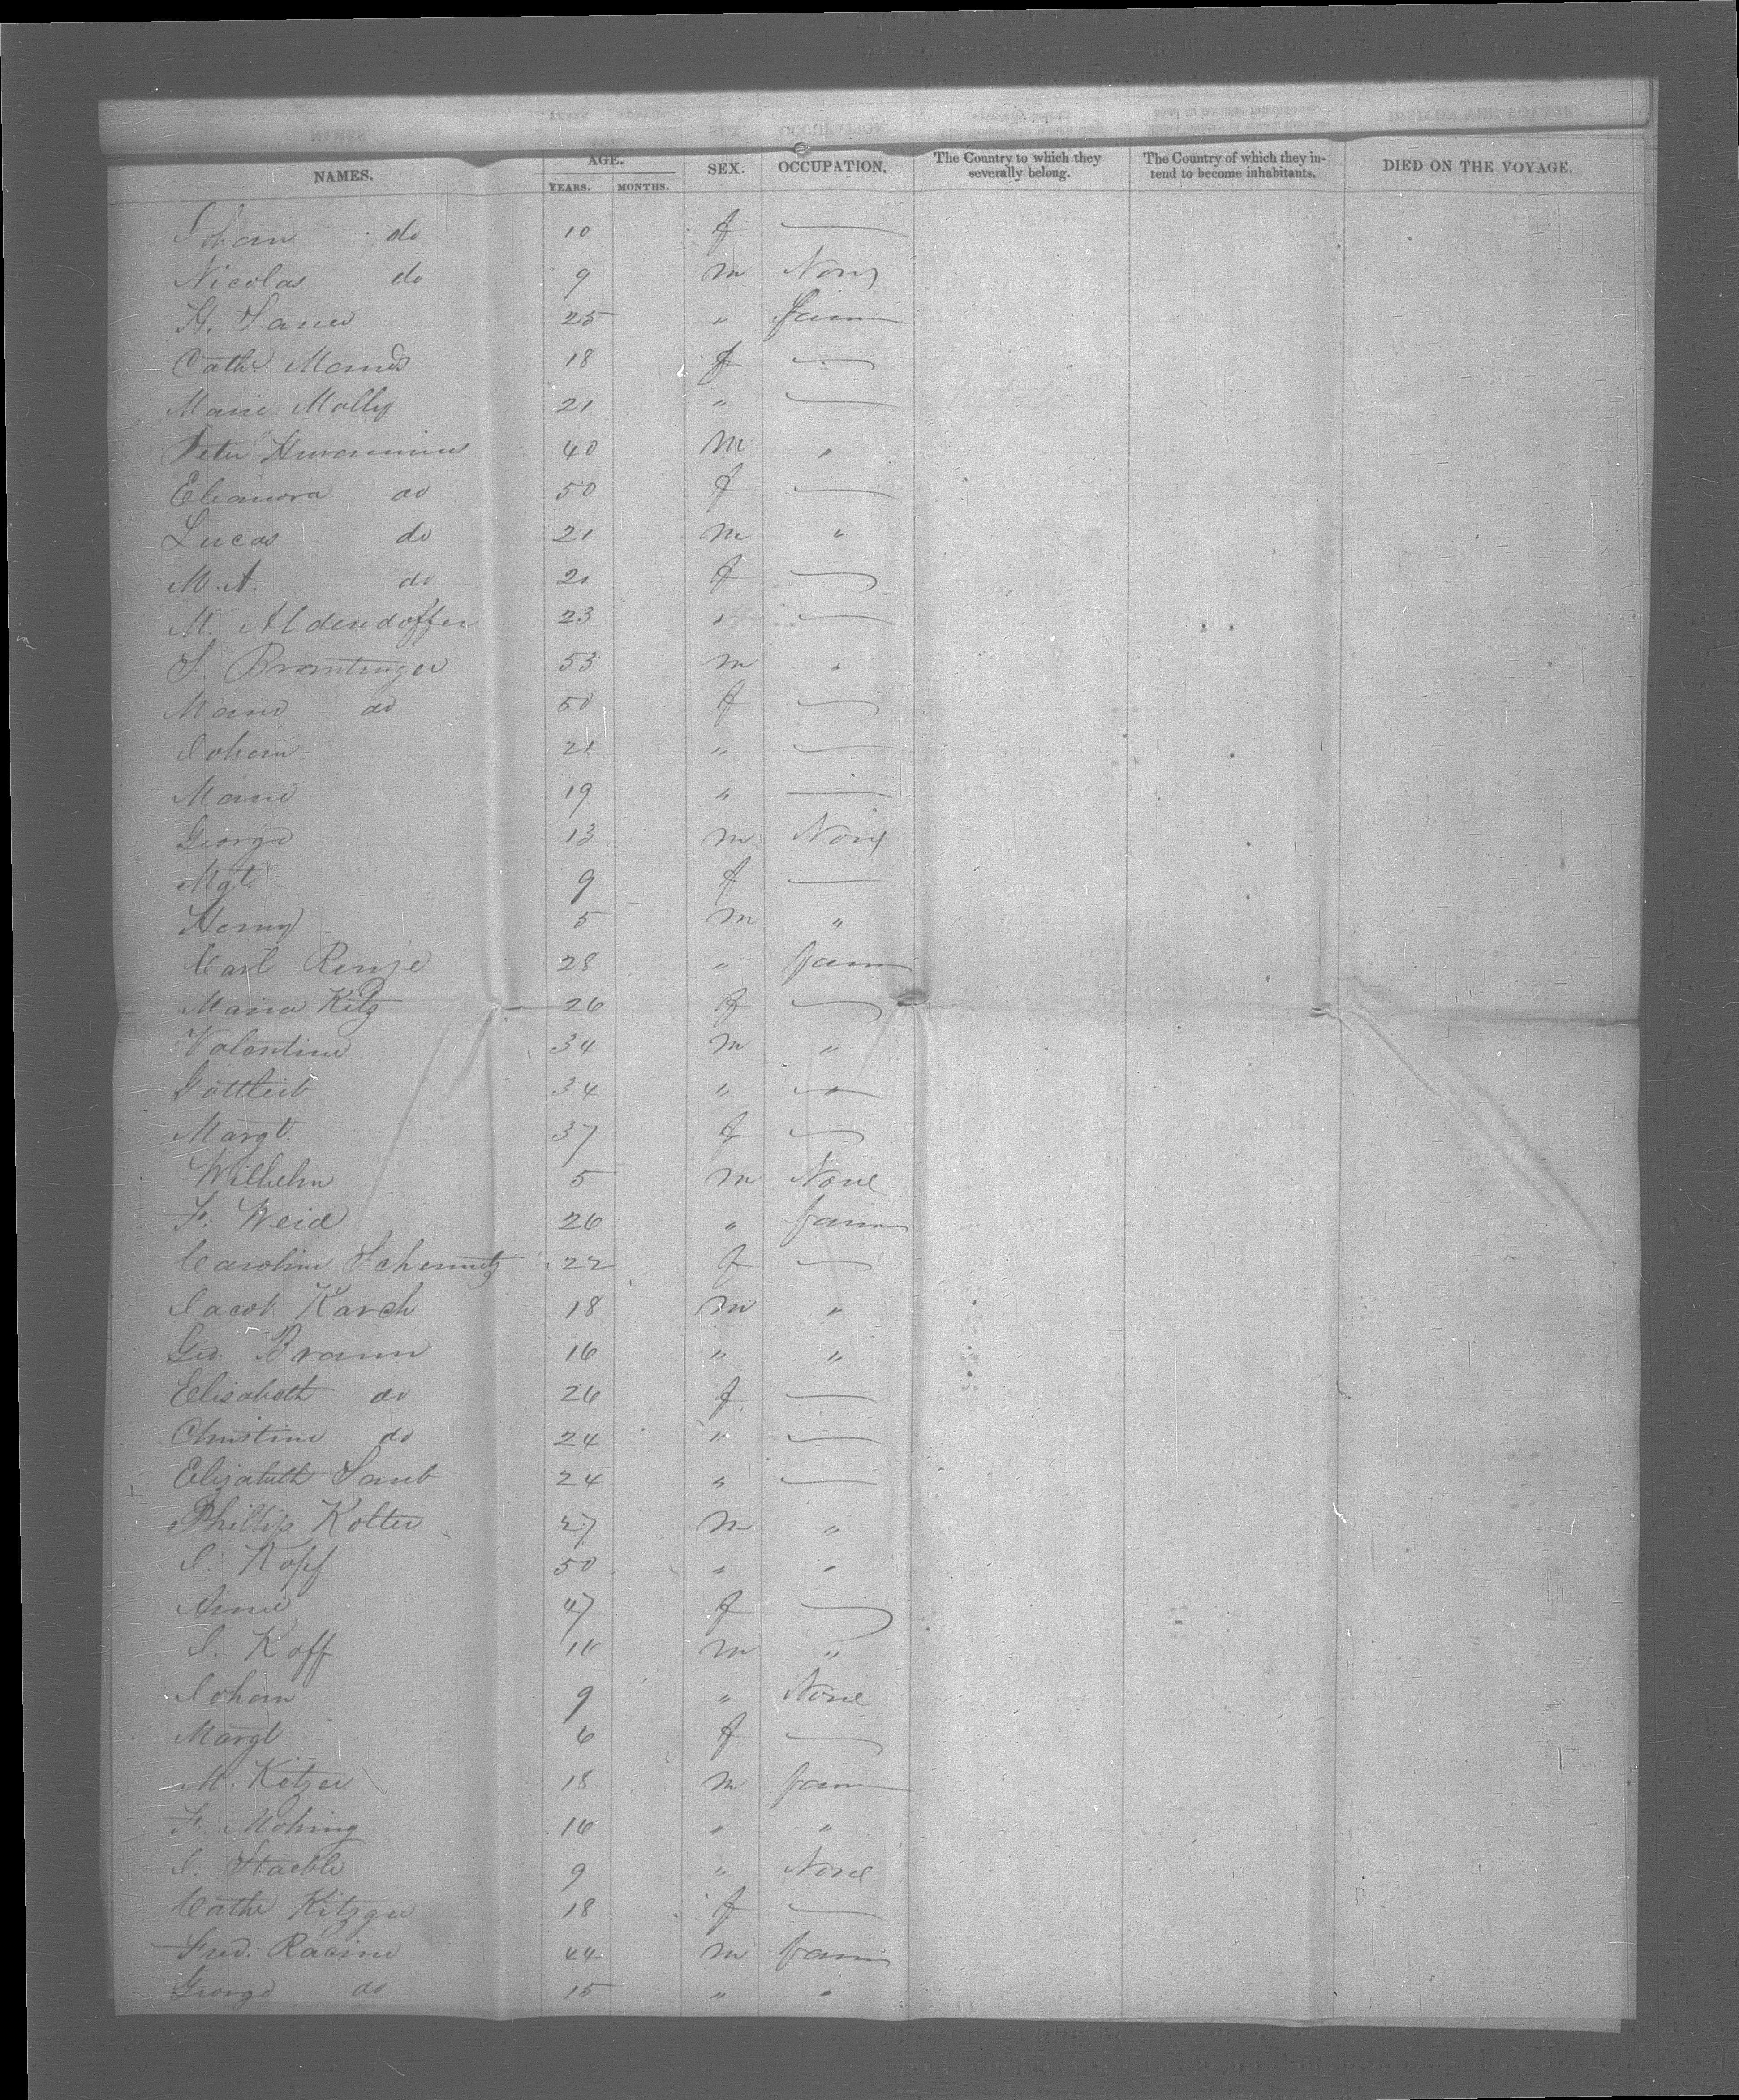 NAMES. AGE. SEX. OCCUPATION. The Country to which they severally belong. The Country of which they intend to become inhabitants. DIED ON THE VOYAGE.
YEARS. MONTHS.
do 10 f —
Nicolas do 9 m None
H. 25 " farm
Cathe 18 f —
Marie Molly 21 " —
Peter 40 m "
Eleanora do 50 f —
Lucas do 21 m "
M. A. do 21 f —
M. Aldendoffer 23 " —
S. Brantinger 53 m "
Marie do 50 f —
Johan 21 " —
Marie 19 " —
George 13 m None
Mgt. 9 f —
Henry 5 m "
Carl Renje 28 " farm
Maria Kitz 26 f —
Valentine 34 m "
Gottleib 34 " "
Margt. 37 f —
Wilhelm 5 m None
F. Weid 26 " farm
Caroline Schemitz 22 f —
Jacob Karch 18 m "
Geo. Braun 16 " "
Elisabeth do 26 f —
Christine do 24 " —
Elizabeth Saub 24 " —
Phillip Kolter 27 m "
J. Kopf 50 " "
Annie 47 f —
J. Koff 11 m "
Johan 9 " None
Margt 6 f —
M. Kitzer 18 m farm
F. Mohing 16 " "
J. Staeble 9 " None
Cathe Kitzger 18 f —
Fred. Racine 44 m farm
George do 15 " "